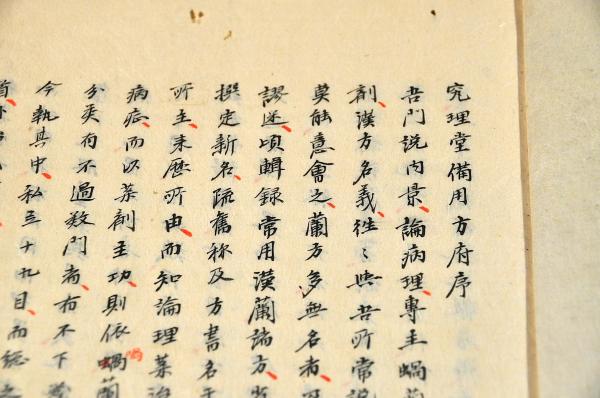 究理堂備用方府序
吾門説内景論病理專主蝸蘭
劑漢方名義往〻與吾所常説
莫能意會之蘭方多無名者
謬迷頃輯録常用漢蘭諸方
撰定新名疏舊称及方書名
所主来歴所由而知論理藥
病症而以藥劑主功則依蝸蘭
分类有不過数門者有不下
今執其中私三十九目而統之